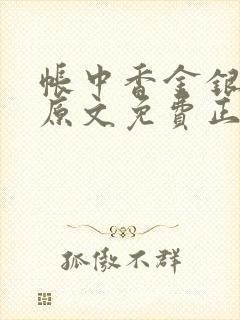 帳中香金銀
原文免費正
孤傲不群